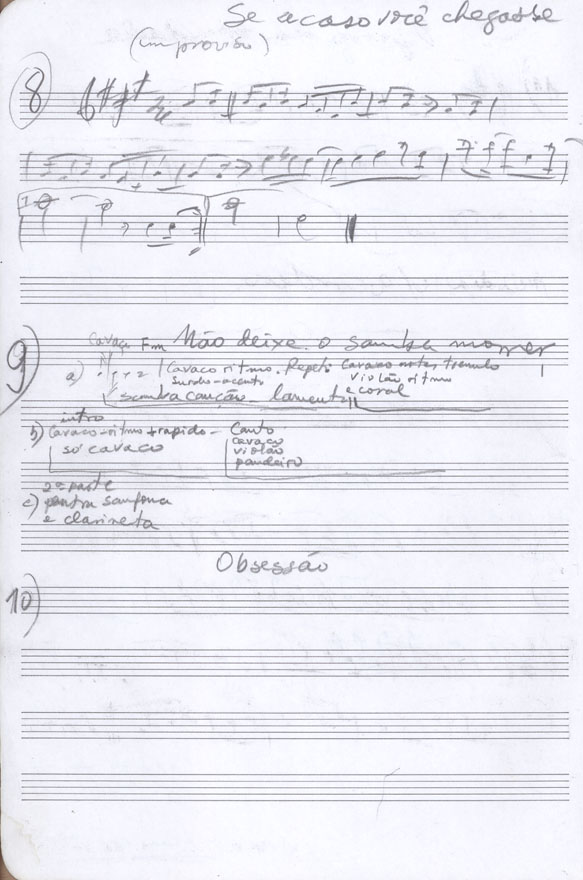 Se acaso você chegasse
(improviso)
8
1
9) Cavaco Fm Não deixe o samba morrer
a) Cavaco ritmo. Repete Cavaco notas tremulo
Surdo-acento violão ritmo
samba canção - lamento e coral
intro
b) Cavaco-ritmo + rapido - Canto
só cavaco cavaco
violão
pandeiro
2ª parte
c) entra sanfona
e clarineta
Obsessão
10)